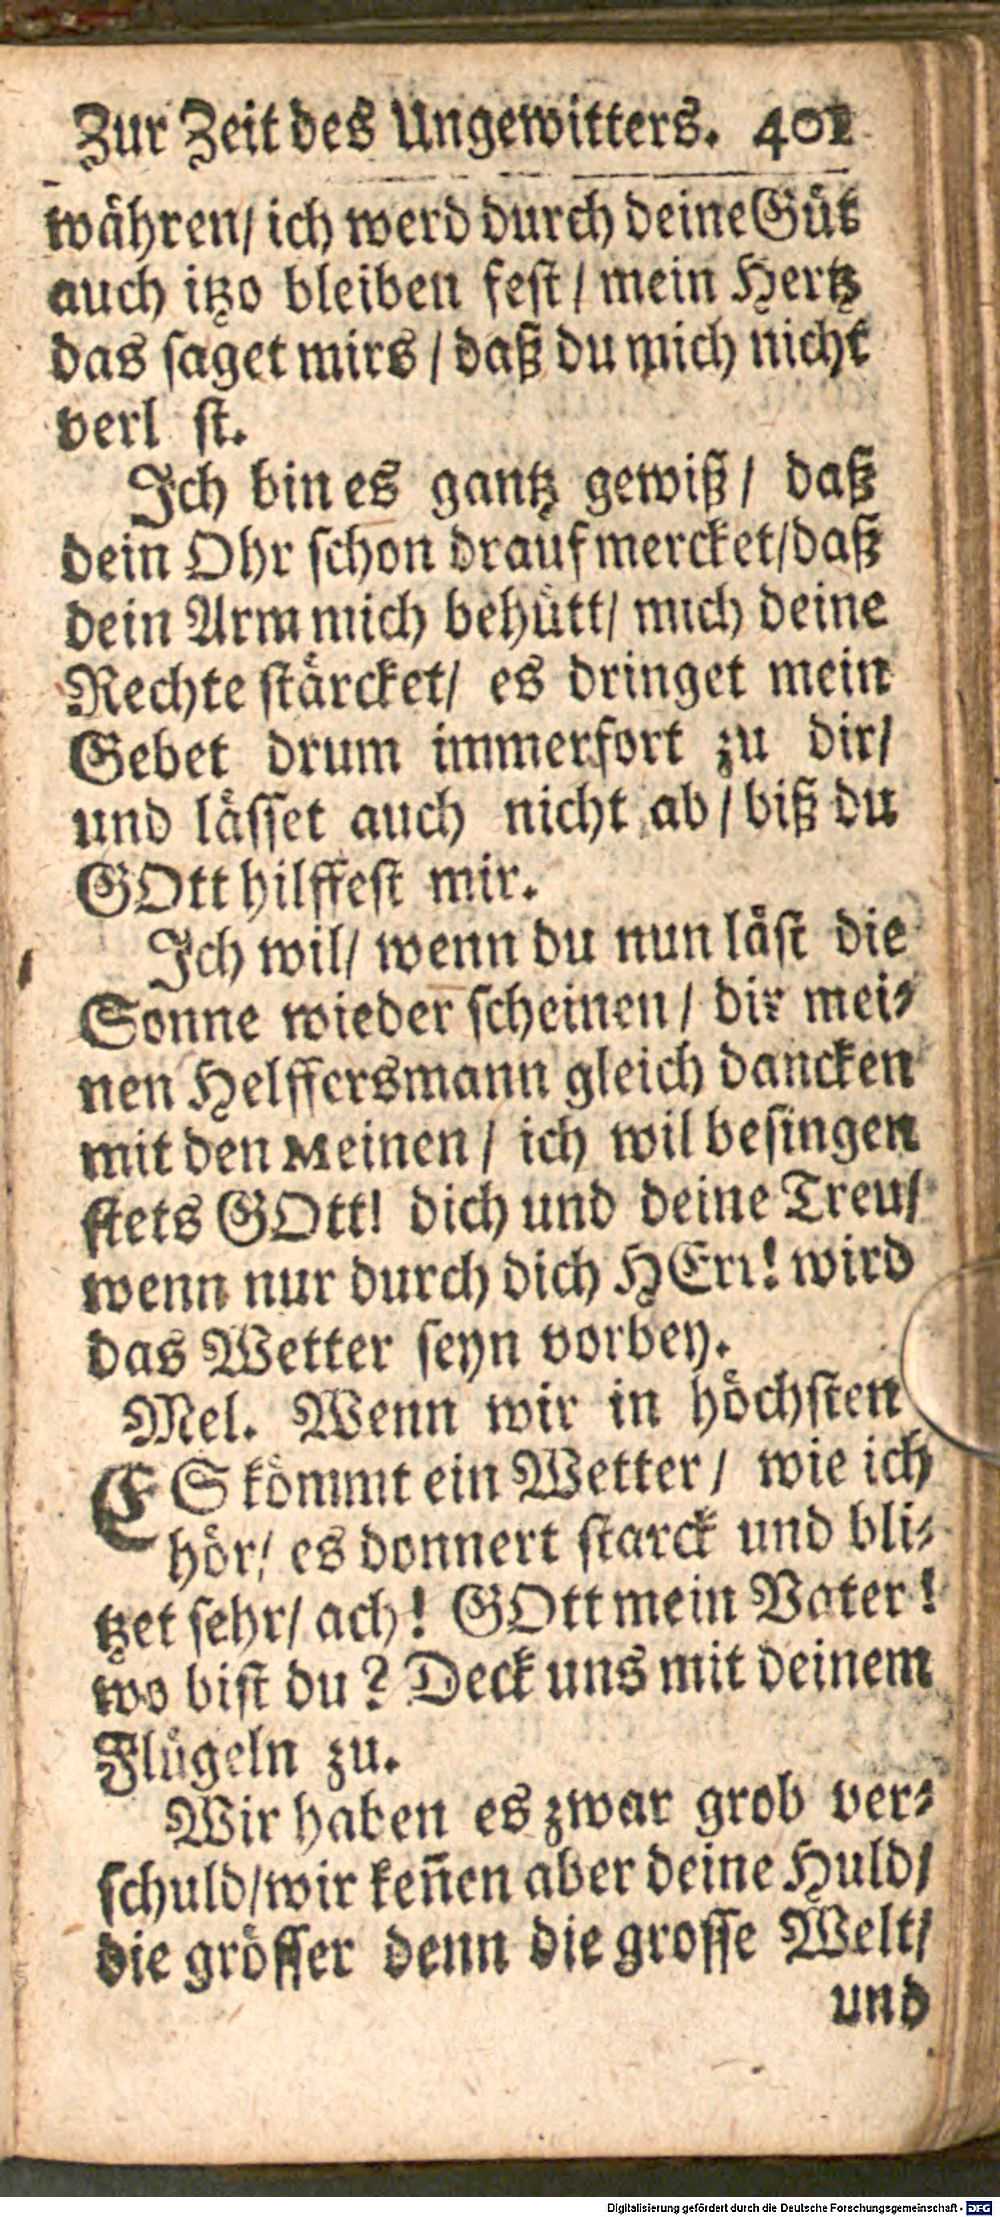 Zur Zeit des Ungewitters. 401
währen/ ich werd durch deine Güt
auch itzo bleiben fest/ mein Hertz
das saget mirs/ daß du mich nicht
verl st.
Ich bin es gantz gewiß/ daß
dein Ohr schon drauf mercket/ daß
dein Arm mich behütt/ mich deine
Rechte stärcket/ es dringet mein
Gebet drum immerfort zu dir/
und lässet auch nicht ab/ biß du
GOtt hilffest mir.
Ich wil/ wenn du nun läst die
Sonne wieder scheinen/ dir mei-
nen Helffersmann gleich dancken
mit den Meinen/ ich wil besingen
stets GOtt! dich und deine Treu/
wenn nur durch dich HErr! wird
das Wetter seyn vorbey.
Mel. Wenn wir in höchsten
ES kömmt ein Wetter/ wie ich
hör/ es donnert starck und bli-
tzet sehr/ ach! GOtt mein Vater!
wo bist du? Deck uns mit deinem
Flügeln zu.
Wir haben es zwar grob ver-
schuld/ wir keñen aber deine Huld/
die grösser denn die grosse Welt/
und
Digitalisierung gefördert durch die Deutsche Forschungsgemeinschaft - DFG